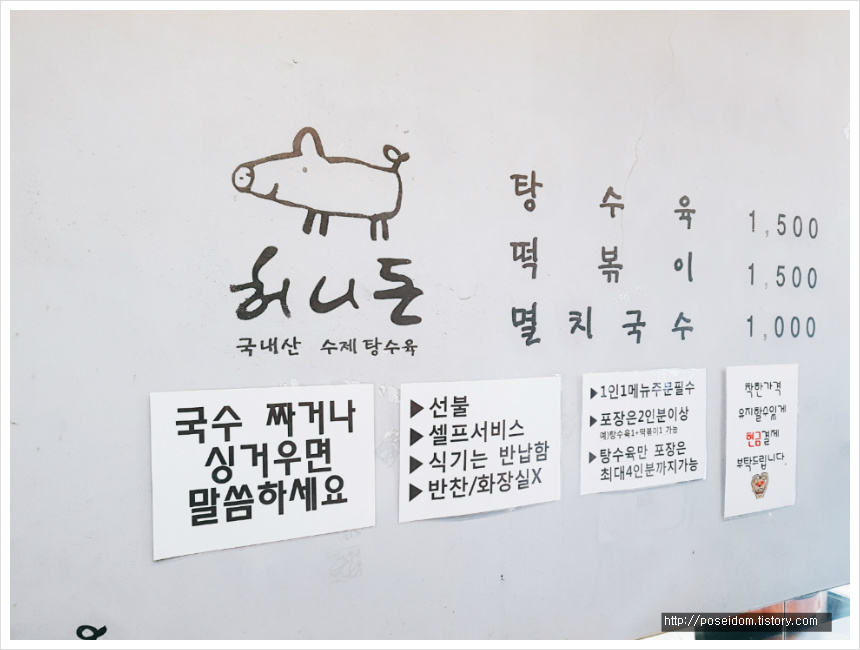 허니돈
국내산 수제탕수육
탕수육 1,500
떡볶이 1,500
멸치국수 1,000
국수 짜거나
싱거우면
말씀하세요
▶선불
▶셀프서비스
▶식기는 반납함
▶반찬/화장실X
▶1인1메뉴주문필수
▶포장은2인분이상
예)탕수육1+떡볶이1 가능
▶탕수육만 포장은
최대4인분까지가능
착한가격
유지할수있게
현금결제
부탁드립니다.
http://poseidom.tistory.com